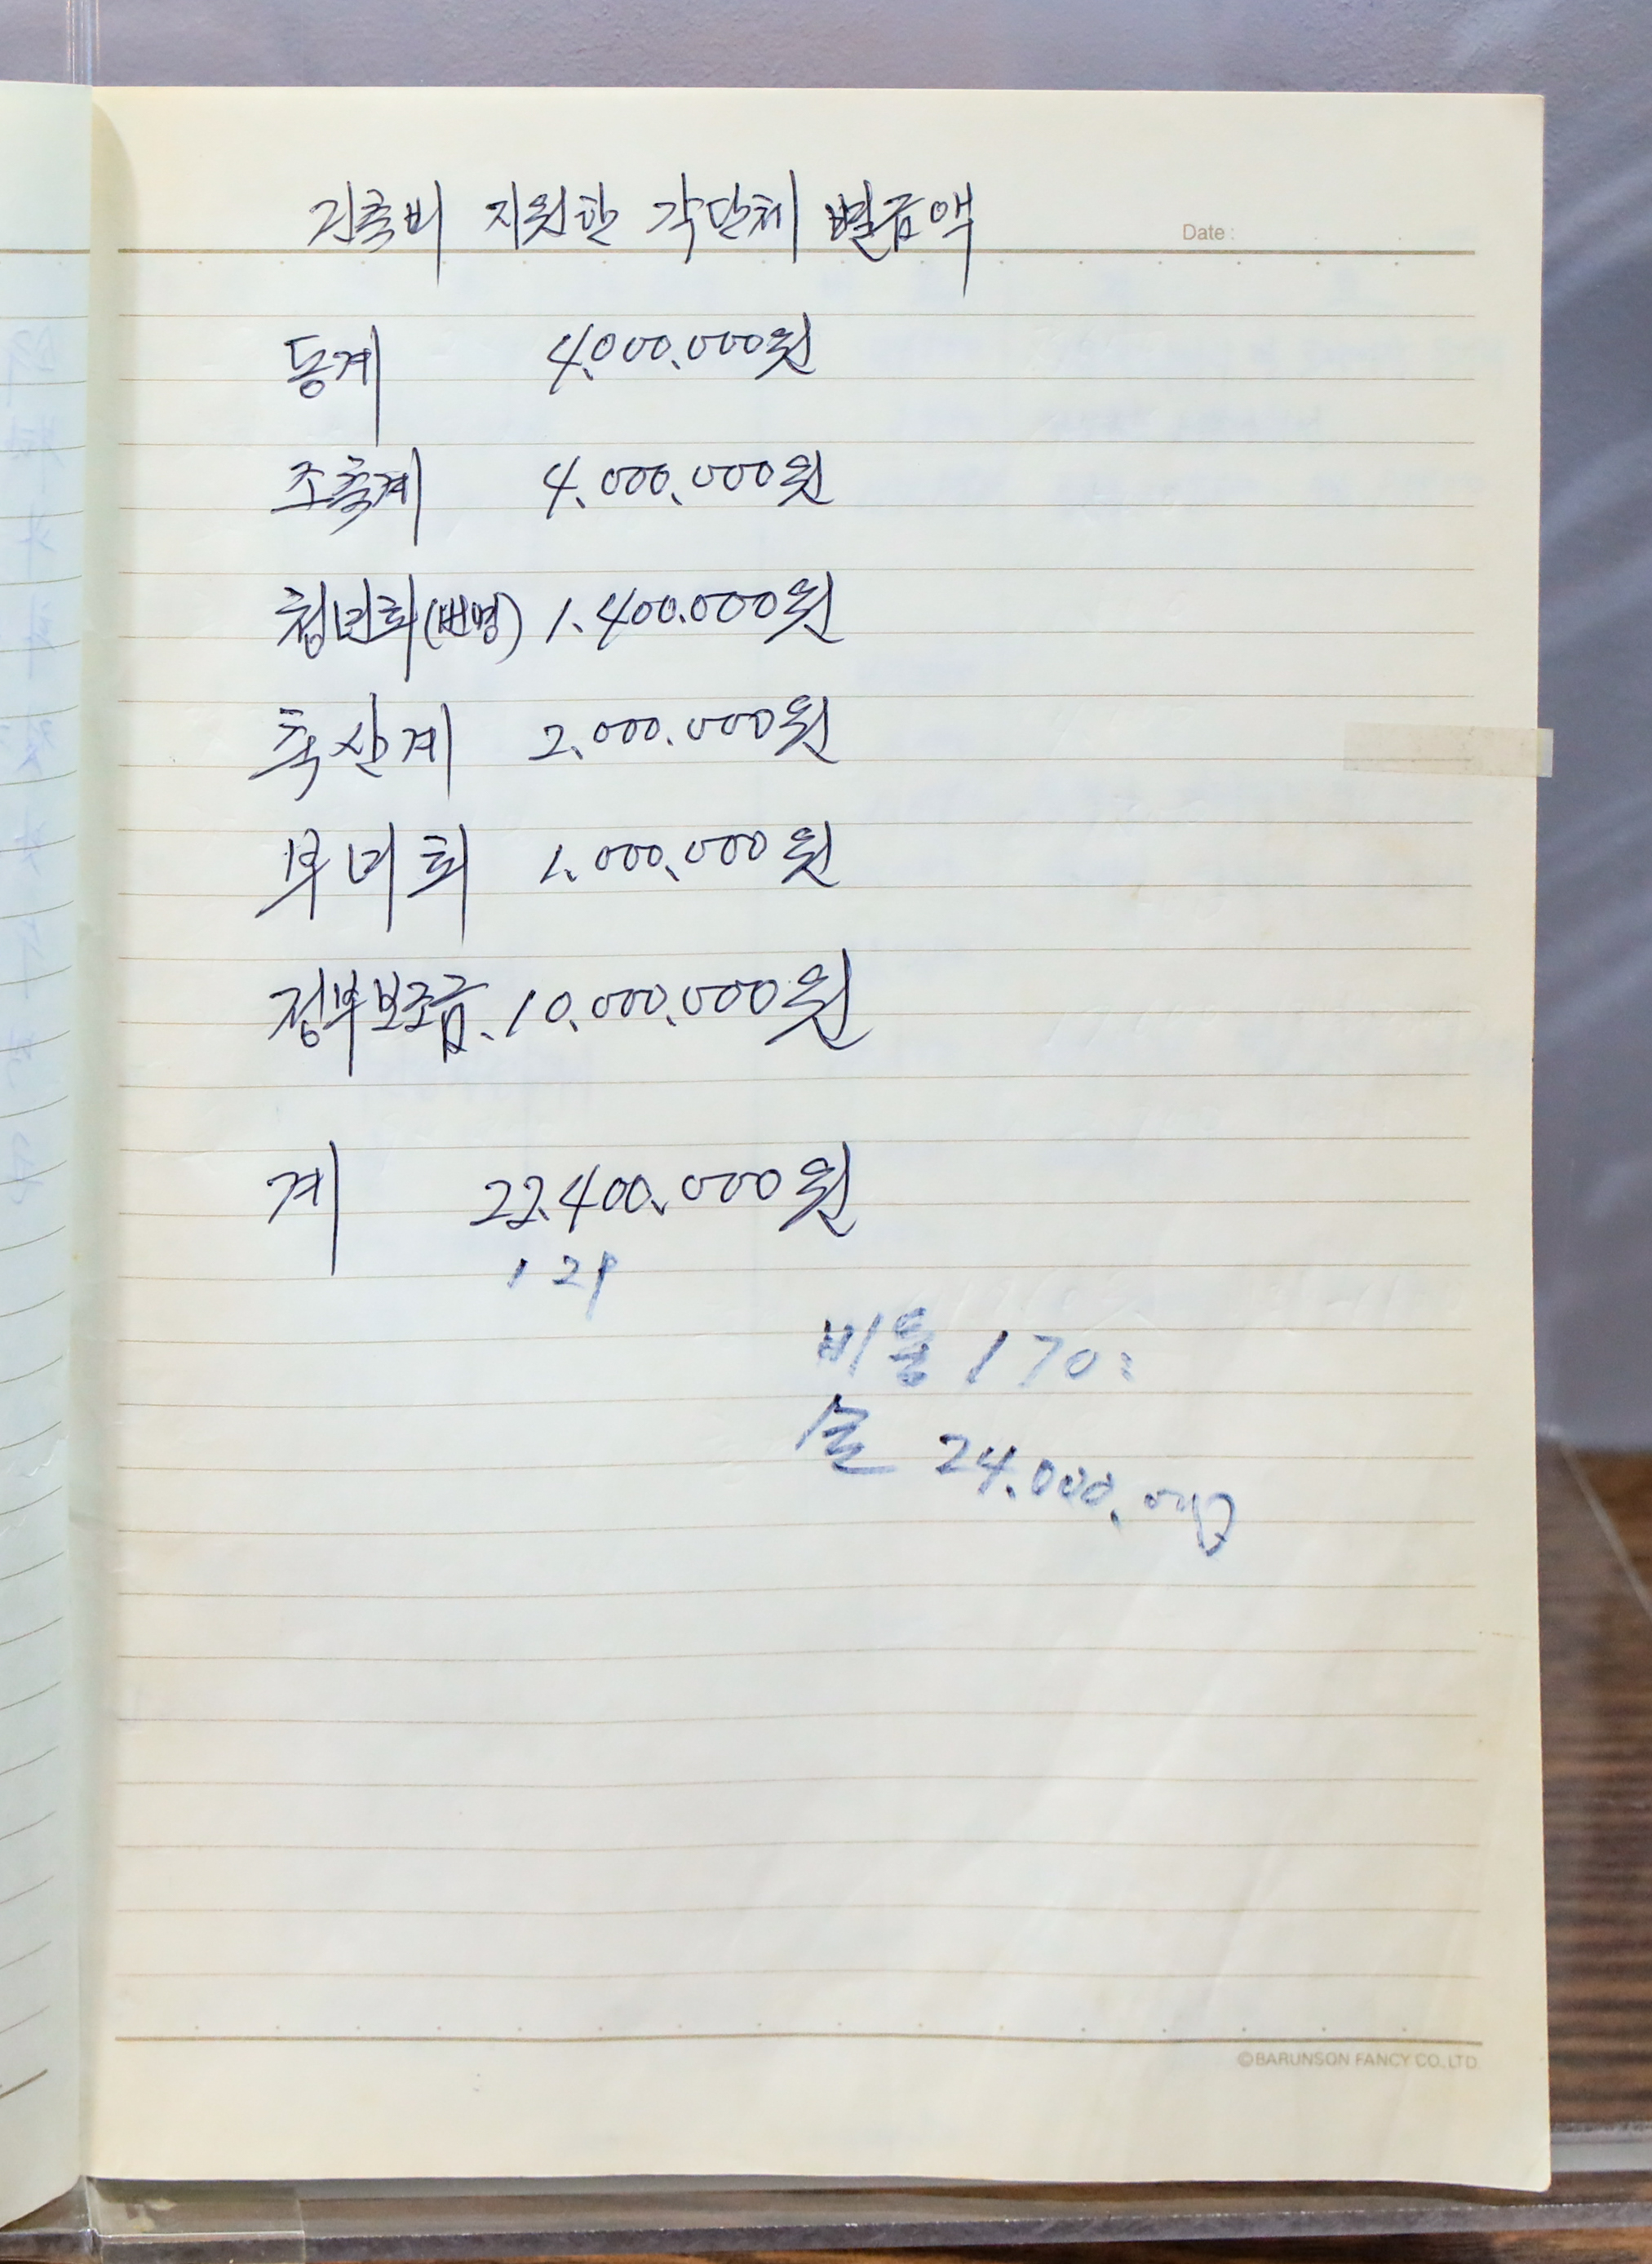 건축비 지원한 각단체 별금액
Date :
동계 4,000,000원
조축계 4,000,000원
청년회(번영) 1,400,000원
축산계 2,000,000원
부녀회 1,000,000원
정부보조금. 10,000,000원
계 22,400,000원
1 29
비틀 170
솔 24,000,
©BARUNSON FANCY CO., LTD